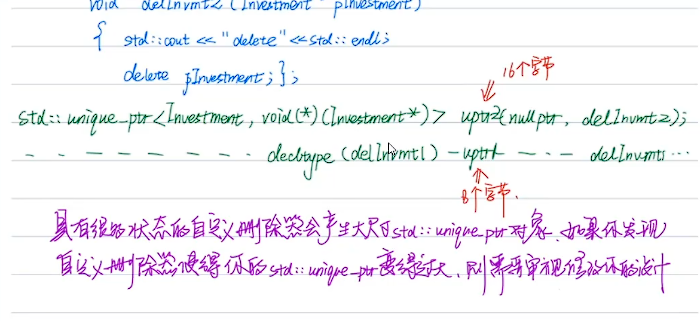 void delInvmt2 (Investment* pInvestment)
{ std::cout << "delete" << std::endl;
delete pInvestment; };
16个字节
std::unique_ptr<Investment, void(*)(Investment*)> uptr2(nullptr, delInvmt2);
- - - - - - - - decltype (delInvmt1) - uptr1 - - - delInvmt1 ...
8个字节.
具有很多状态的自定义删除器会产生大尺寸std::unique_ptr对象. 如果你发现
自定义删除器使得你的std::unique_ptr变得过大, 则需要审视修改你的设计